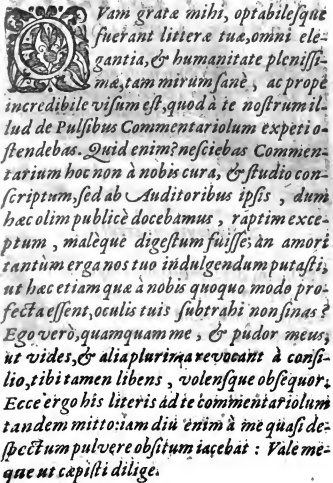 QVam gratæ mihi, optabilesque
fuerant litteræ tuæ, omni ele-
gantia, & humanitate plenissi-
mæ, tam mirum sanè, ac propè
incredibile visum est, quod à te nostrum il-
lud de Pulsibus Commentariolum expeti o-
stendebas. Quid enim? nesciebas Commen-
tarium hoc non à nobis cura, & studio con-
scriptum, sed ab Auditoribus ipsis, dum
hæc olim publicè docebamus, raptim exce-
ptum, malèque digestum fuisse; an amori
tantùm erga nos tuo indulgendum putasti,
ut hæc etiam quæ à nobis quoquo modo pro-
fecta essent, oculis tuis subtrahi non sinas?
Ego verò, quamquam me, & pudor meus,
ut vides, & alia plurima revocant à consi-
lio, tibi tamen libens, volensque obsequor;
Ecce ergo his literis ad te commentariolum
tandem mitto: iam diù enim à me quasi de-
spectum pulvere obsitum iacebat: Vale me-
que ut cæpisti dilige.